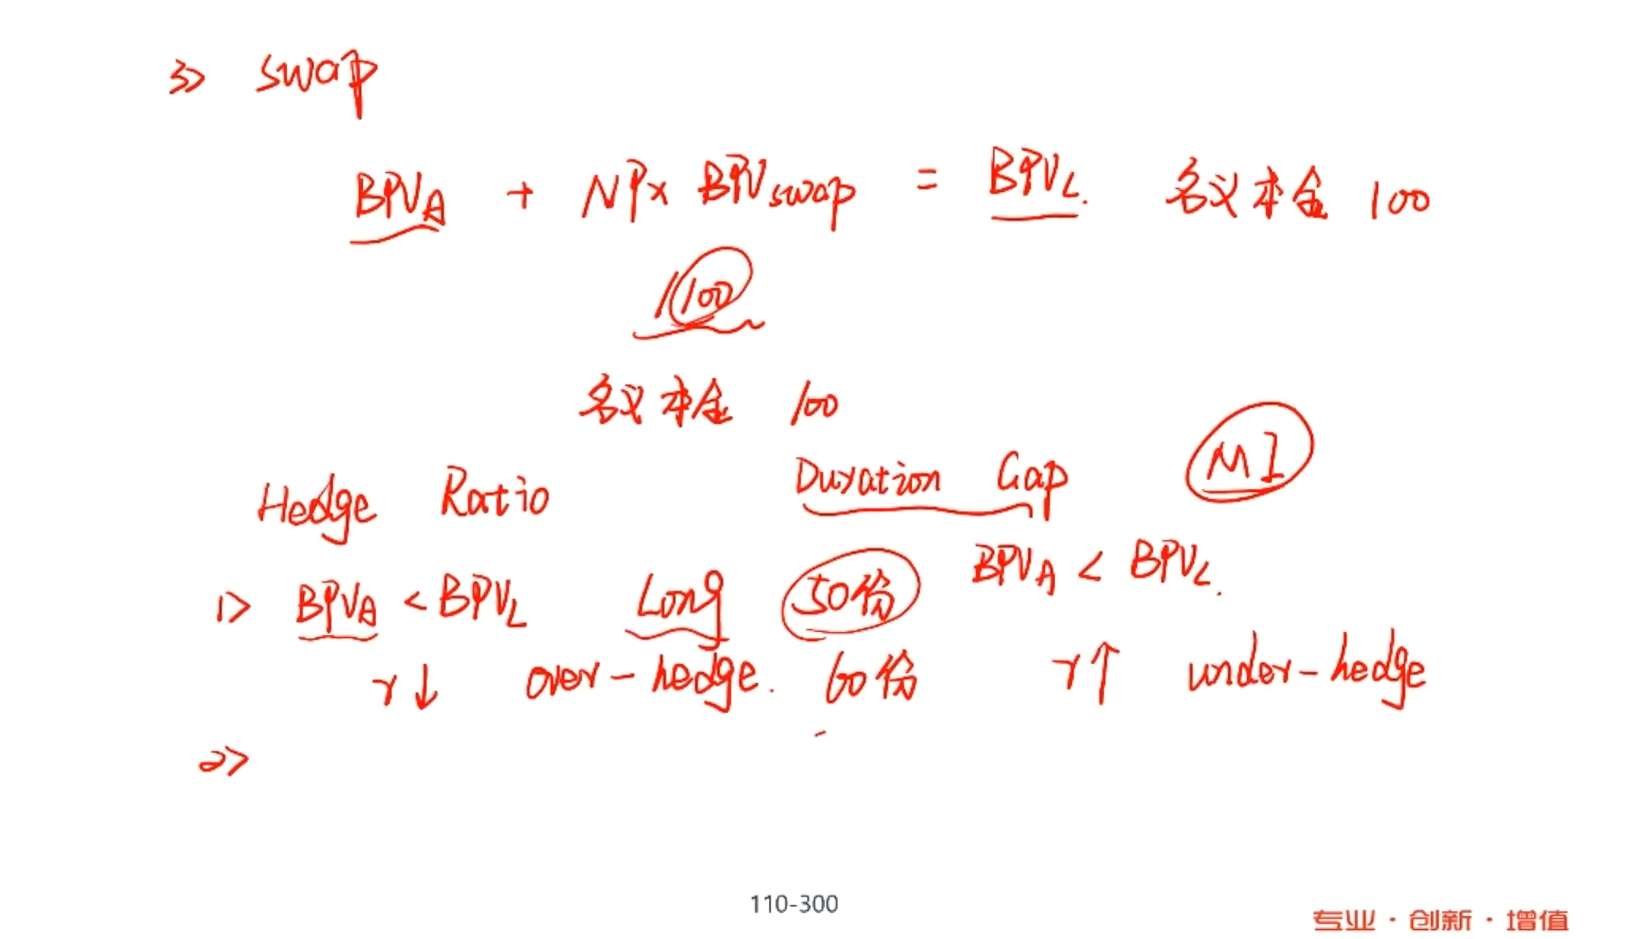 3> swap
BPV_A + NP× BPV_swap = BPV_L. 名义本金 100
100
名义本金 100
Hedge Ratio Duration Gap MI
1> BPV_A < BPV_L Long 50份 BPV_A < BPV_L.
r↓ over-hedge. 60份 r↑ under-hedge
2>
110-300
专业·创新·增值